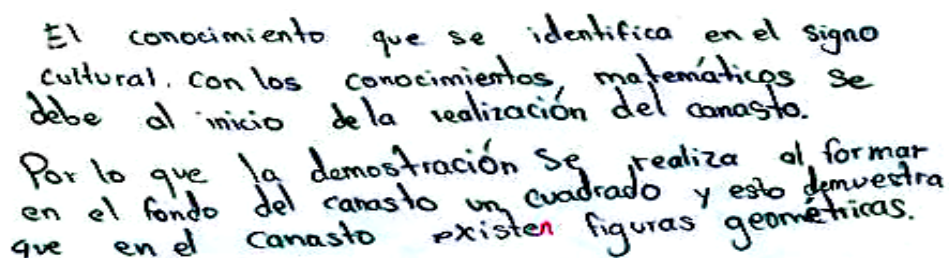 El conocimiento que se identifica en el signo
cultural. con los conocimientos matemáticos se
debe al inicio de la realización del canasto.
Por lo que la demostración se realiza al formar
en el fondo del canasto un cuadrado y esto demuestra
que en el canasto existen figuras geométricas.